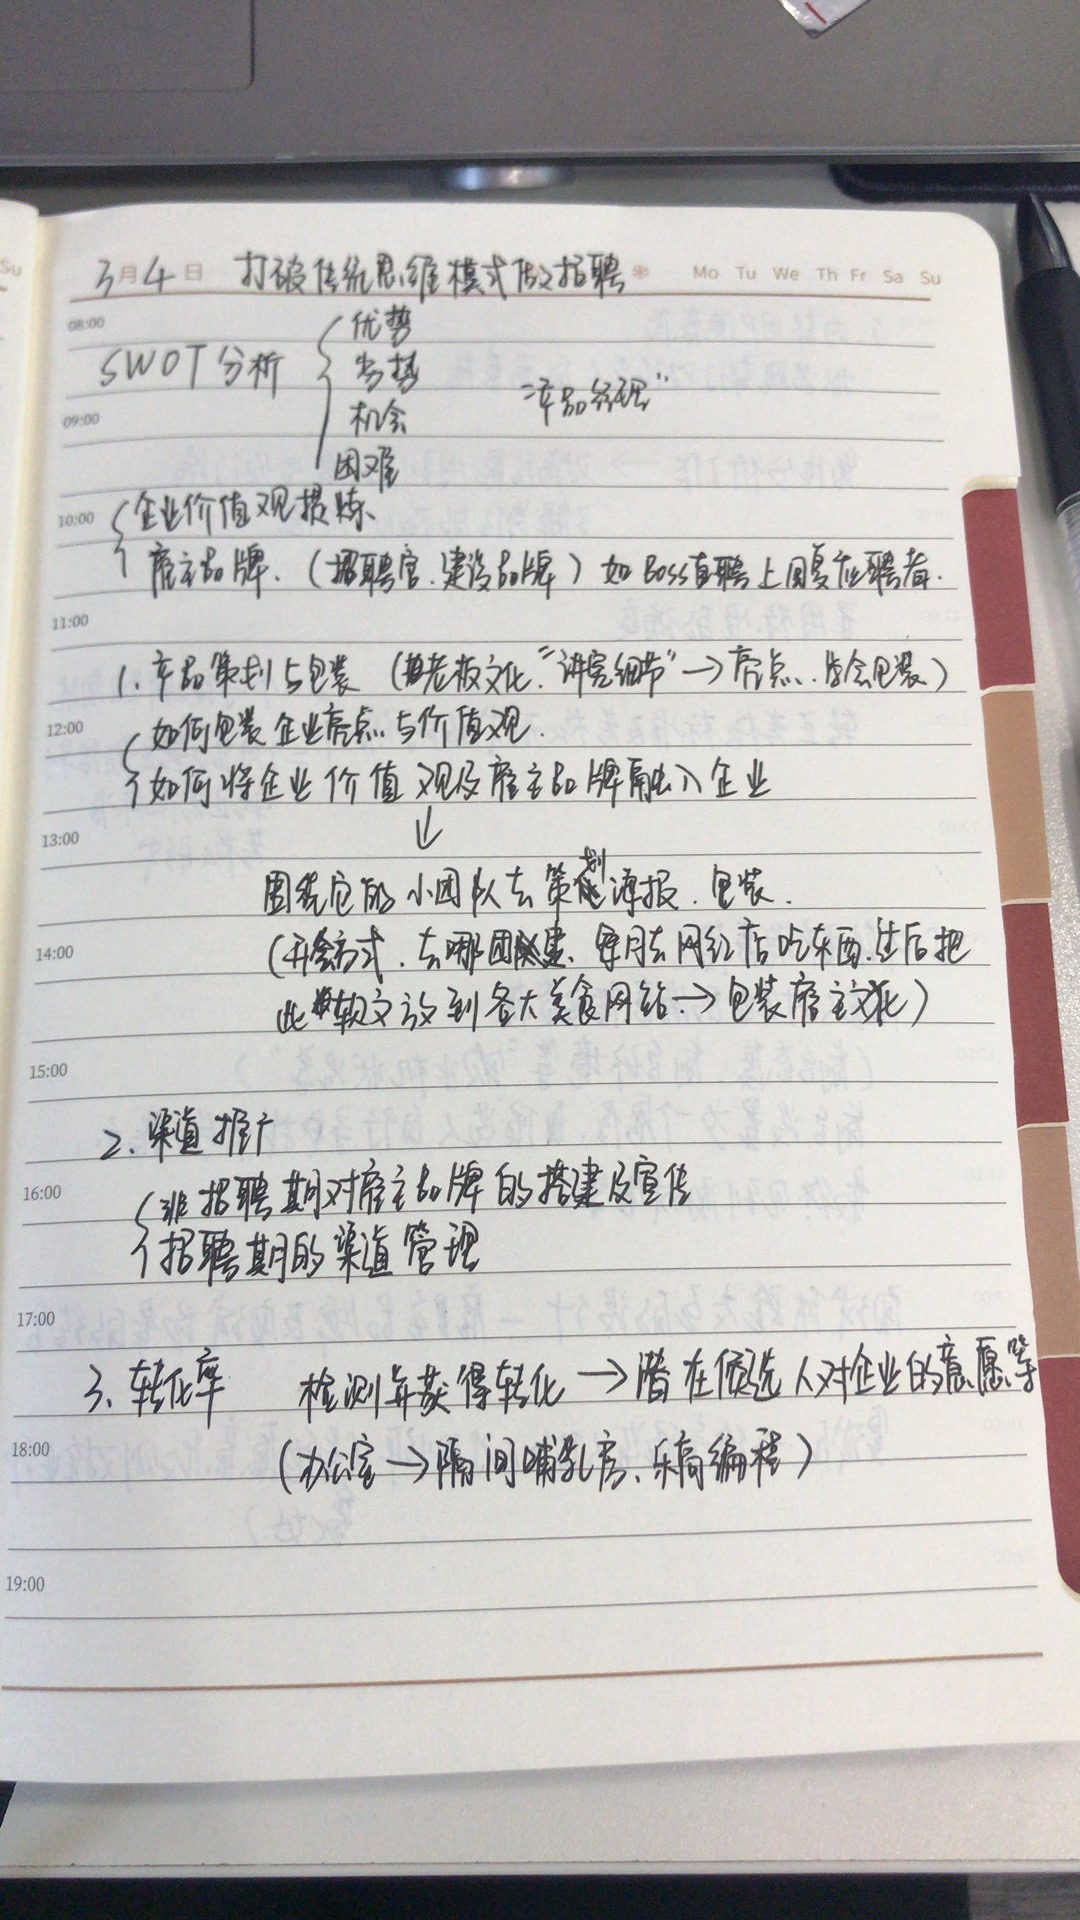 3月4日 打破传统思维模式做招聘 Mo Tu We Th Fr Sa Su
08:00
优势
SWOT分析 劣势
"产品经理"
09:00
机会
困难
10:00 企业价值观提炼
雇主品牌.(招聘官.建设品牌)如Boss直聘上回复应聘者.
11:00
1.产品策划与包装(老板文化."讲究细节"→亮点.结合包装)
12:00
如何包装企业亮点与价值观.
如何将企业价值观及雇主品牌融入企业
13:00
↓
围绕它的小团队去策划海报.包装.
14:00
(开会方式.去哪团建.每月去网红店吃东西.然后把
此软文放到各大美食网站→包装雇主文化)
15:00
2.渠道推广
16:00
非招聘期对雇主品牌的搭建及宣传
招聘期的渠道管理
17:00
3.转化率 检测并获得转化→潜在候选人对企业的意愿等
18:00
(办公室→隔间哺乳房、乐高编程)
19:00